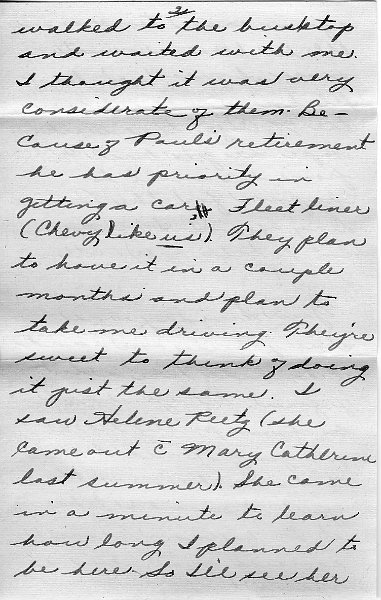 2.
walked to the busstop
and waited with me.
I thought it was very
considerate of them. Be-
cause of Paul's retirement
he has priority in
getting a car. Fleetliner
(Chevy like us). They plan
to have it in a couple
months and plan to
take me driving. They're
sweet to think of doing
it just the same. I
saw Helene Reetz (she
came out c̄ Mary Catherine
last summer). She came
in a minute to learn
how long I planned to
be here. So I'll see her